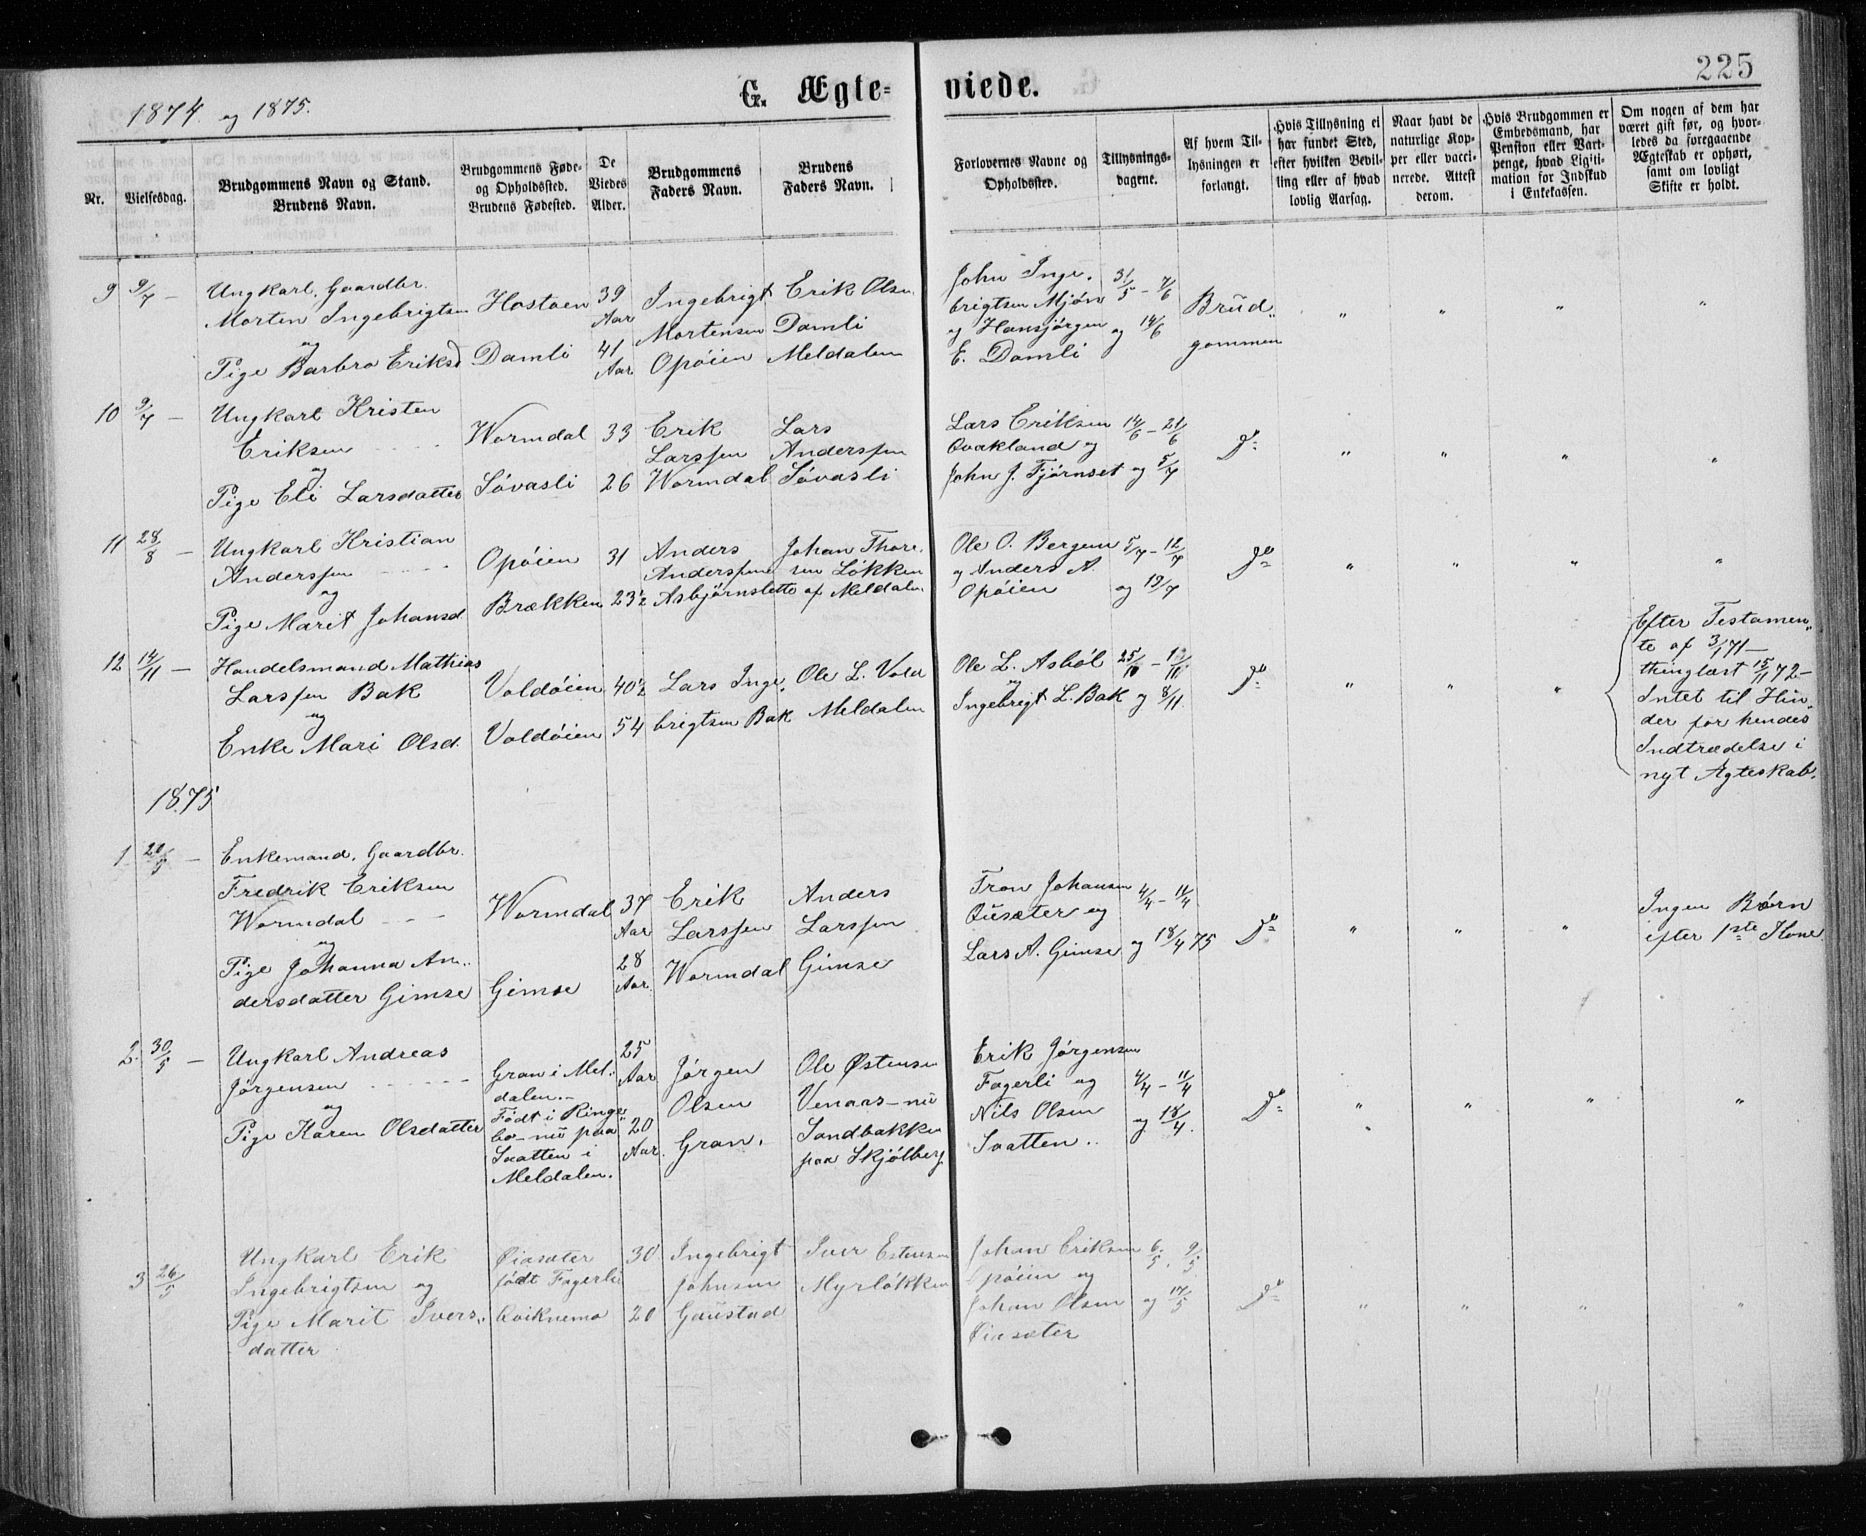 225
1874. og 1875.
G. Ægte- viede.
Nr.
Vielsesdag.
Brudgommens Navn og Stand.
Brudens Navn.
Brudgommens Føde-
og Opholdssted.
Brudens Fødested.
De
Viedes
Alder.
Brudgommens
Faders Navn.
Brudens
Faders Navn.
Forlovernes Navne og
Opholdssted.
Tillysnings-
dagene.
Af hvem Til-
lysningen er
forlangt.
Hvis Tillysning ei
har fundet Sted,
efter hvilken Bevil-
ling eller af hvad
lovlig Aarsag.
Naar havt de
naturlige Kop-
per eller vacci-
nerede. Attest
derom.
Hvis Brudgommen er
Embedsmand, har
Pension eller Vart-
penge, hvad Ligiti-
mation for Indskud
i Enkekassen.
Om nogen af dem har
været gift før, og hvor-
ledes da foregaaende
Ægteskab er ophørt,
samt om lovligt
Skifte er holdt.
9 9/7 —
Ungkarl, Gaardbr.
Morten Ingebrigtsen
og
Pige Barbro Eriksd
Hostoen
Damli
39
Aar
41
Aar
Ingebrigt
Mortensen
Opøien
Erik Olsen
Damli
Meldalen
John Inge-
brigtsen Mjøn
og Hansjørgen
E. Damli
31/5 - 7/6
og 14/6
Brud-
gommen
" " " "
10 9/7 —
Ungkarl Kristen
Eriksen
og
Pige Eli Larsdatter
Wormdal
Søvasli
33
26
Erik
Larssen
Wormdal
Lars
Anderssen
Søvasli
Lars Eriksen
Qvakland og
John J. Fjørnset
14/6 - 21/6
og 5/7
Do
" " " "
11 28/8 —
Ungkarl Kristian
Anderssen
og
Pige Marit Johansd.
Opøien
Brækken
31
23½
Anders
Anderssen
Asbjørnslette
Johan Thore-
sen Løkken
af Meldalen
Ole O. Bergem
og Anders A.
Opøien
5/7 - 12/7
og 19/7
Do
" " " "
12 14/11 —
Handelsmand Mathias
Larssen Bak
og
Enke Mari Olsd.
Voldøien
Voldøien
40½
54
Lars Inge-
brigtsen Bak
Ole L. Vold
Meldalen
Ole L. Asbøl
og
Ingebrigt L. Bak
25/10 -
og 8/11
Do
" " "
Efter Testamen-
te af 3/1 71 —
thinglæst 15/11 72 —
Intet til Hin-
der for hendes
Indtrædelse i
nyt Ægteskab.
1875
1 20/5 —
Enkemand, Gaardbr.
Fredrik Eriksen
Wormdal
og
Pige Johanna An-
dersdatter Gimse
Wormdal
Gimse
37
Aar
28
Aar.
Erik
Larssen
Wormdal
Anders
Larssen
Gimse
Tron Johansen
Qusæter og
Lars A. Gimse
4/4 - 11/4
og 18/4 75
Do
" " "
Ingen Børn
efter 1ste Kone
2. 30/5 —
Ungkarl Andreas
Jørgensen
og
Pige Karen Olsdatter
Gran i Mel-
dalen.
Født i Ringe-
bo - nu paa
Saatten i
Meldalen.
25
Aar
20
Aar.
Jørgen
Olsen
Gran.
Ole Østensen
Venaas - nu
Sandbakken
paa Skjølberg
Erik Jørgensen
Fagerli og
Nils Olsen
Saatten
4/4 - 11/4
og 18/4.
Do
" " " "
3 26/5
Ungkarl Erik
Ingebrigtsen og
Pige Marit Ivers-
datter
Øiasæter
født Fagerli
Kviknemo
30
20
Ingebrigt
Johnsen
Gaustad
Iver Estensen
Myrløkken
Johan Eriksen
Opøien og
Johan Olsen
Øiasæter
6/5. 9/5
og 17/5
Do
" " " "